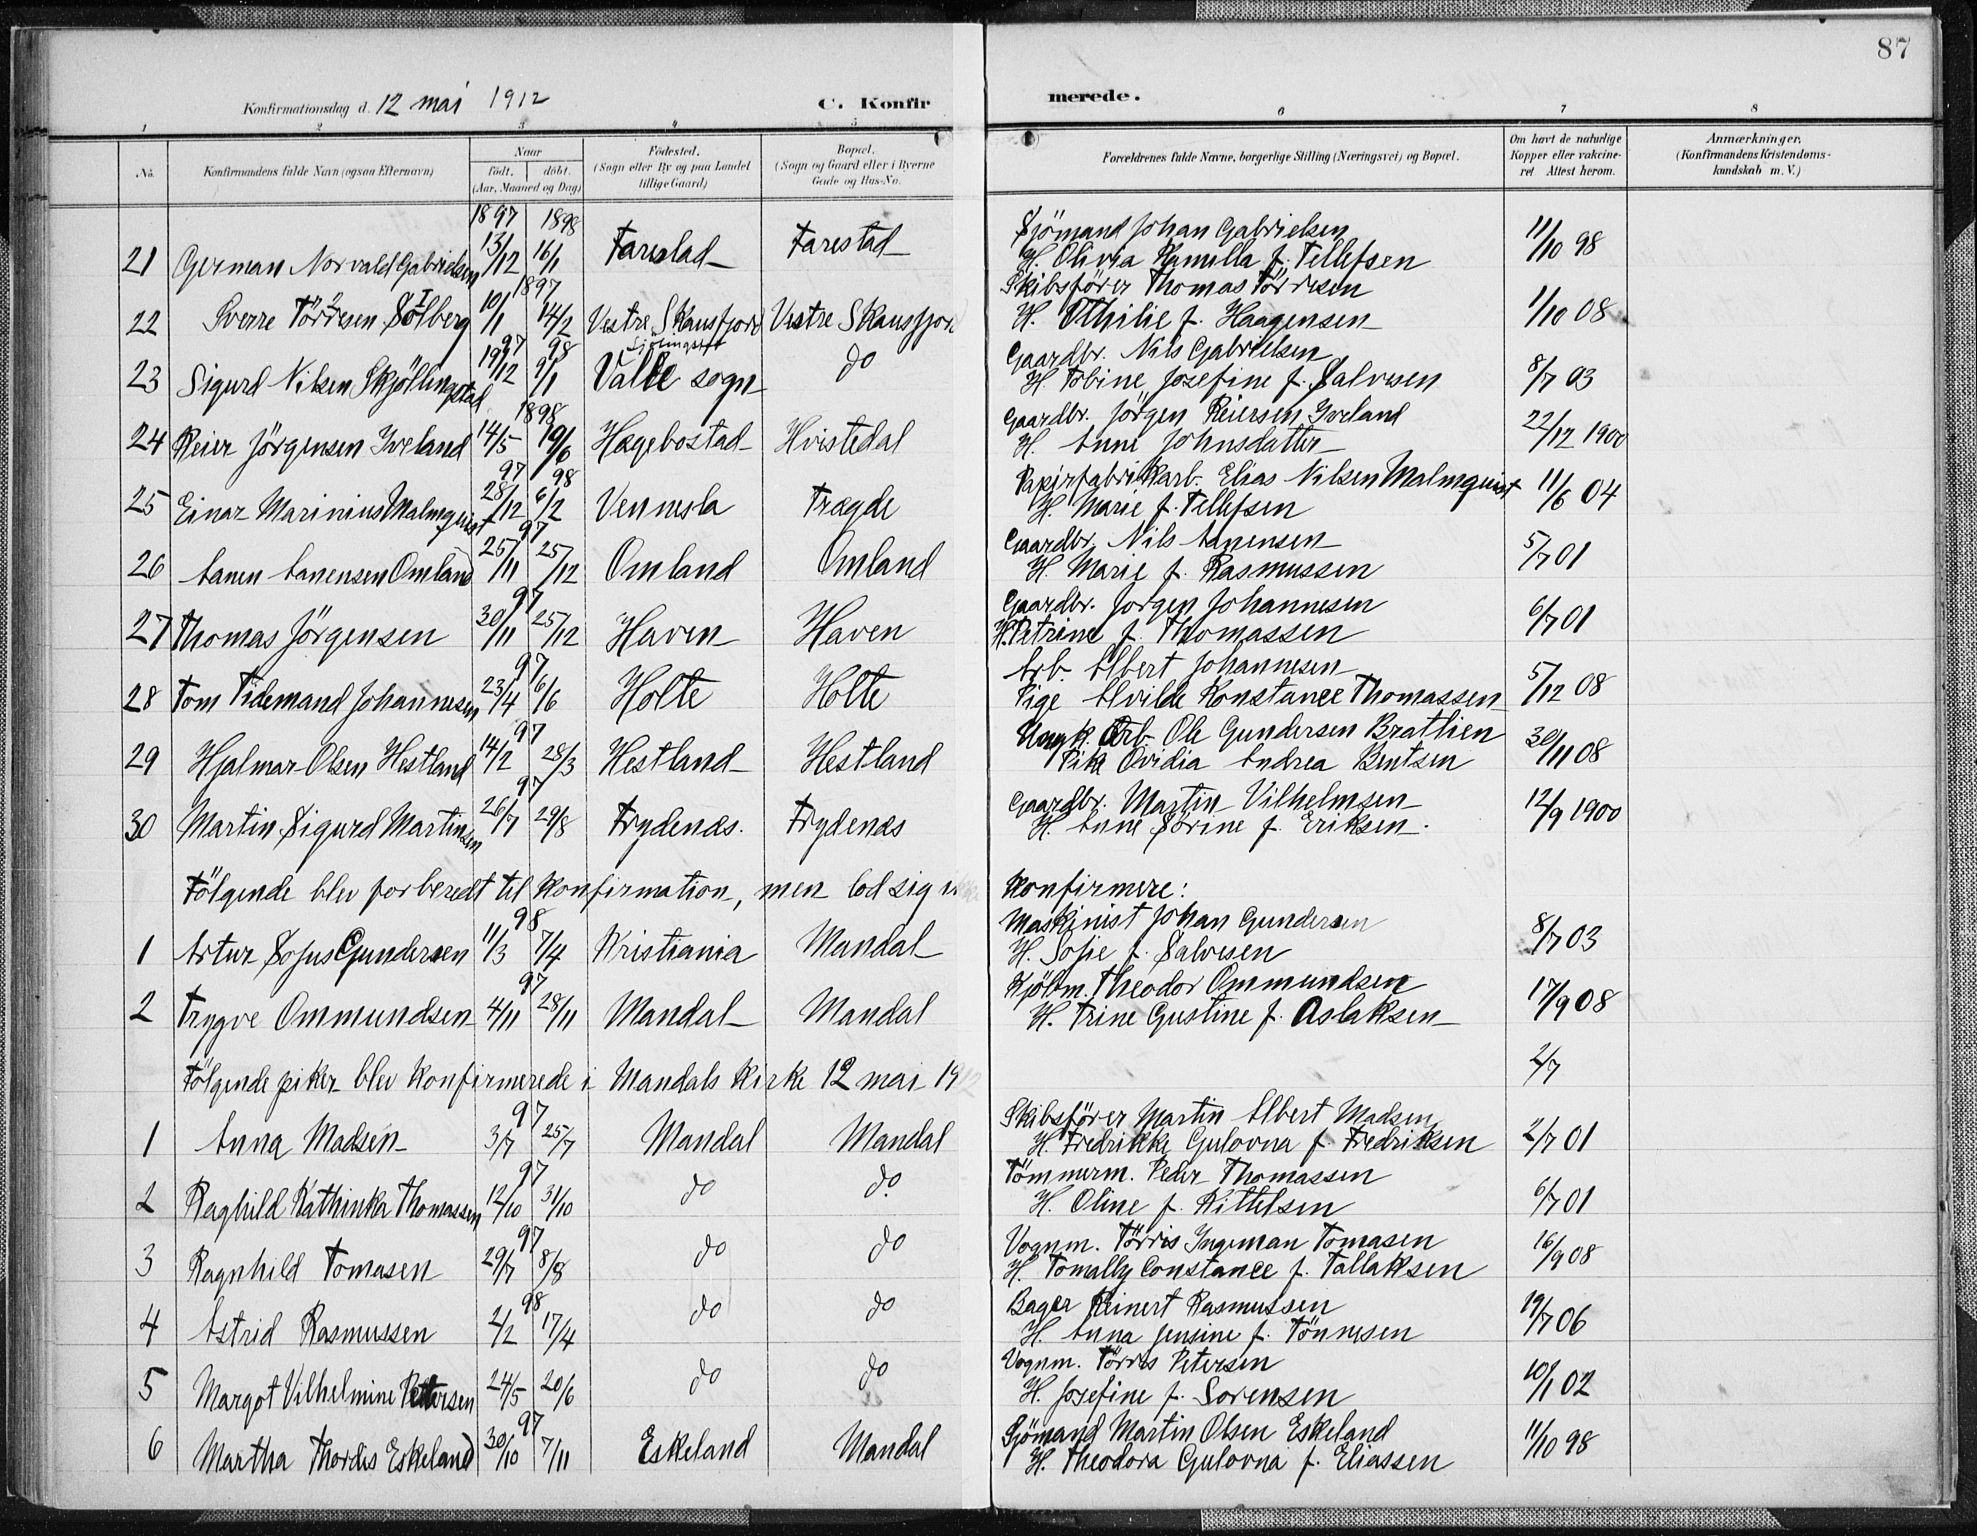 87
Konfirmationsdag d. 12 mai 1912 C. Konfirmerede.
1 2 3 4 5 6 7 8
No. Konfirmandens fulde Navn (ogsaa Efternavn) Naar født. døbt. (Aar, Maaned og Dag) Fødested. (Sogn eller By og paa Landet tillige Gaard) Bopæl. (Sogn og Gaard eller i Byerne Gade og Hus-No. Forældrenes fulde Navne, borgerlige Stilling (Næringsvei) og Bopæl. Om havt de naturlige Kopper eller vakcineret. Attest herom. Anmærkninger. (Konfirmandens Kristendomskundskab m. V.)
1897 1898 Sjömand Johan Gabrielsen
21 German Norvald Gabrielsen 13/12 16/1 Farestad Farestad H. Olivia Kamilla f. Tellefsen 11/10 98
1897 Skibsförer Thomas Törresen
22 Sverre Törresen Sölberg 10/1 14/2 Vestre Skausfjord Vestre Skausfjor H. Othilie f. Haagensen 1/10 08
97 98 Gaardbr. Nils Gabrielsen
23 Sigurd Nilsen Skjöllingstad 19/12 9/1 Valle sogn do H Tobine Josefine f. Salvesen 8/7 03
1898 Gaardbr. Jörgen Reiersen Iveland
24 Reier Jörgensen Iveland 14/5 19/6 Hægebostad Hvistedal H. Anne Johnsdatter 22/12 1900
97 98 Papirfabrikarb. Elias Nilsen Malmquist
25 Einar Marinius Malmquist 28/12 6/2 Vennesla Trægde H. Marie f. Tellefsen 11/6 04
97 Gaardbr. Nils Aanensen
26 Aanen Aanensen Omland 25/11 25/12 Omland Omland H. Marie f. Rasmussen 5/7 01
97 Gaardbr. Jorgen Johannesen
27 Thomas Jörgensen 30/11 25/12 Haven Haven H. Petrine f. Thomassen 6/7 01
97 Arb. Albert Johannesen
28 Tom Tidemand Johannesen 23/4 6/6 Holte Holte Pige Alvilde Konstance Thomassen 5/12 08
97 Ungk. Arb. Ole Gundersen Brathien
29 Hjalmar Olsen Hestland 14/2 28/3 Hestland Hestland Pike Ovidia Andrea Bentsen 30/11 08
97 Gaardbr. Martin Vilhelmsen
30 Martin Sigurd Martinsen 26/7 29/8 Frydenæs. Frydenæs H. Anne Sörine f. Eriksen. 12/9 1900
Fölgende blev forberedt til Konfirmation, men lod sig Konfirmere:
98 Maskinist Johan Gundersen
1 Artur Sofus Gundersen 11/3 7/4 Kristiania Mandal H. Sofie f. Salvesen 8/7 03
97 Theodor Ommundsen
2 Trygve Ommundsen 4/11 28/11 Mandal Mandal H. Trine Gustine f. Aslaksen 17/9 08
Fölgende piker blev Konfirmerede i Mandals Kirke 12 mai 19 2/7
97 Skibsförer Martin Albert Madsen
1 Anna Madsen 3/7 25/7 Mandal Mandal H. Fredrikke Gulovna f Fredriksen 2/7 01
97 Tömmerm. Peder Thomassen
2 Raghild Kathinka Thomassen 12/10 31/10 do do. H. Oline f. Kittelsen 6/7 01
97 Vognm. Törris Ingeman Tomasen
3 Ragnhild Tomasen 29/7 8/8 do do H. Tomally Constance f. Tallaksen 16/9 08
98 Bager Reinert Rasmussen
4 Astrid Rasmussen 2/2 17/4 do do H. Anna Jensine f. Tönnesen 19/7 06
Vognm. Törres Petersen
5 Margot Vilhelmine Petersen 24/5 20/6 do do H. Josefine f. Sorensen 10/1 02
97 Sjömand Martin Olsen Eskeland
6 Martha Thordis Eskeland 30/10 7/11 Eskeland Mandal H. Theodora Gulovna f. Eliassen 11/10 98